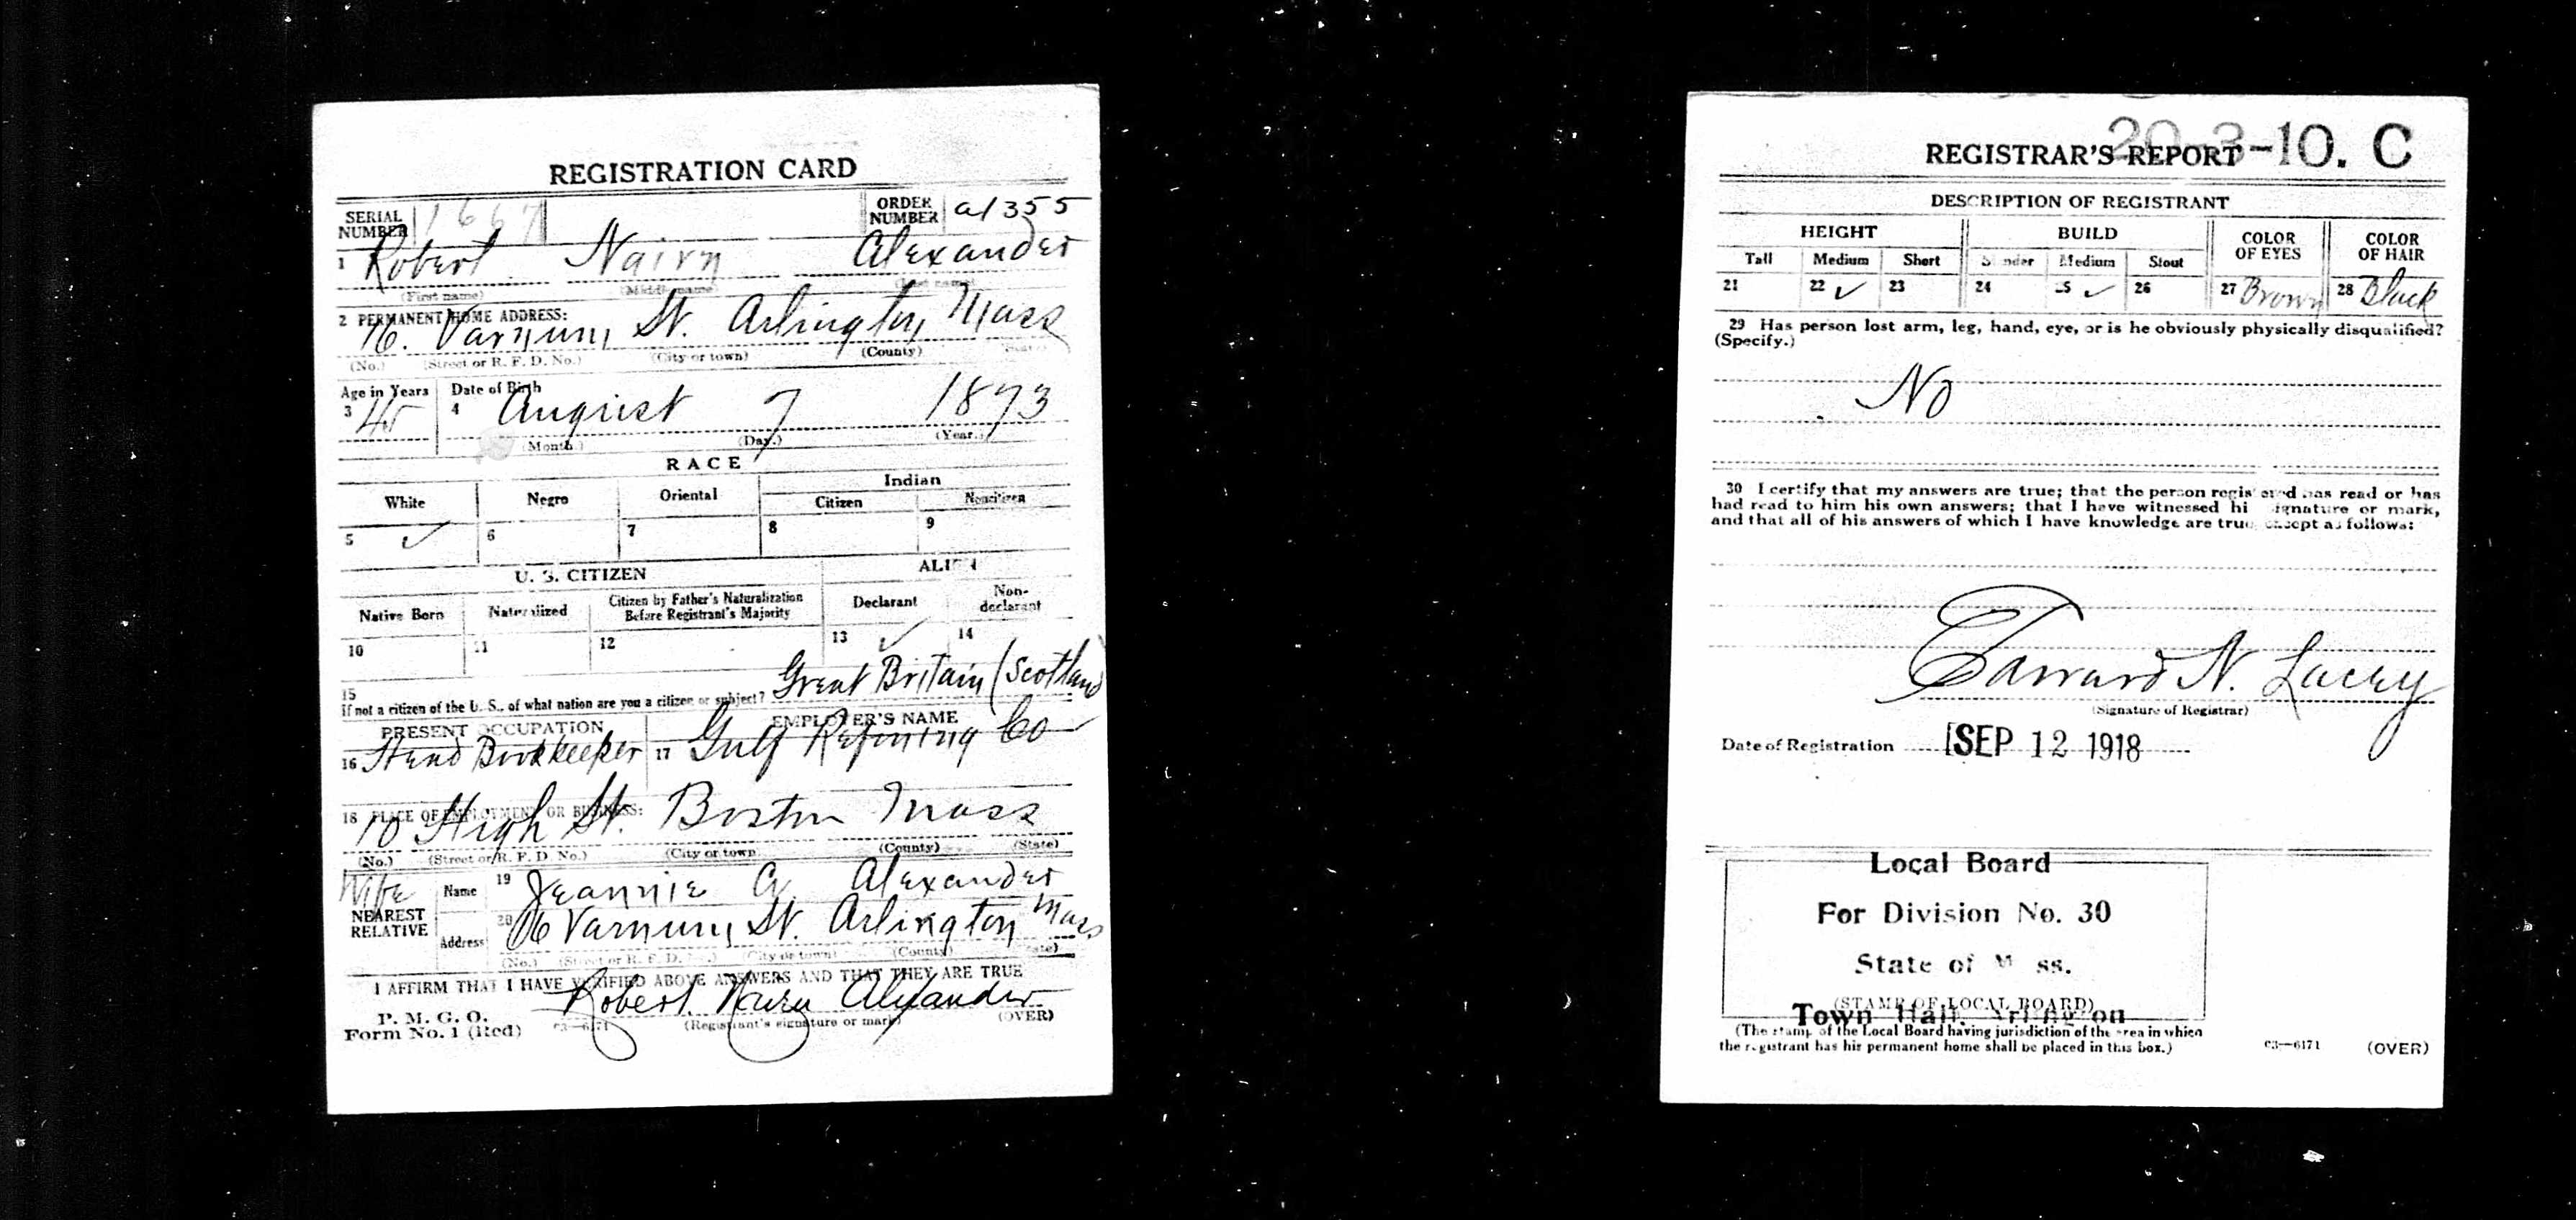 REGISTRATION CARD
SERIAL NUMBER 1667 ORDER NUMBER a1355
1 Robert Nairn Alexander
(First name) (Middle name) (Last name)
2 PERMANENT HOME ADDRESS:
16. Varnum St. Arlington, Mass
(No.) (Street or R. F. D. No.) (City or town) (County) (State)
Age in Years Date of Birth
3 45 4 August 7 1873
(Month.) (Day.) (Year.)
RACE
White Negro Oriental Indian
Citizen Noncitizen
5 ✓ 6 7 8 9
U. S. CITIZEN ALIEN
Native Born Naturalized Citizen by Father's Naturalization Before Registrant's Majority Declarant Non-declarant
10 11 12 13 ✓ 14
15 If not a citizen of the U. S., of what nation are you a citizen or subject? Great Britain (Scotland)
PRESENT OCCUPATION EMPLOYER'S NAME
16 Head Bookkeeper 17 Gulf Refining Co
18 PLACE OF EMPLOYMENT OR BUSINESS:
10 High St. Boston Mass
(No.) (Street or R. F. D. No.) (City or town) (County) (State)
Wife
NEAREST RELATIVE
Name 19 Jeannie Alexander
Address 20 16 Varnum St. Arlington Mass
(No.) (Street or R. F. D. No.) (City or town) (County) (State)
I AFFIRM THAT I HAVE VERIFIED ABOVE ANSWERS AND THAT THEY ARE TRUE
P. M. G. O.
Form No. 1 (Red) C3—6171 Robert Nairn Alexander
(Registrant's signature or mark) (OVER)
20-3-10. C
REGISTRAR'S REPORT
DESCRIPTION OF REGISTRANT
HEIGHT BUILD COLOR OF EYES COLOR OF HAIR
Tall Medium Short Slender Medium Stout
21 22 ✓ 23 24 25 ✓ 26 27 Brown 28 Black
29 Has person lost arm, leg, hand, eye, or is he obviously physically disqualified?
(Specify.)
No
30 I certify that my answers are true; that the person registered has read or has
had read to him his own answers; that I have witnessed his signature or mark,
and that all of his answers of which I have knowledge are true, except as follows:
Edward N. Lacey
(Signature of Registrar)
Date of Registration SEP 12 1918
Local Board
For Division No. 30
State of Mass.
(STAMP OF LOCAL BOARD)
Town Hall, Arlington
(The stamp of the Local Board having jurisdiction of the area in which
the registrant has his permanent home shall be placed in this box.)
C3—6171 (OVER)